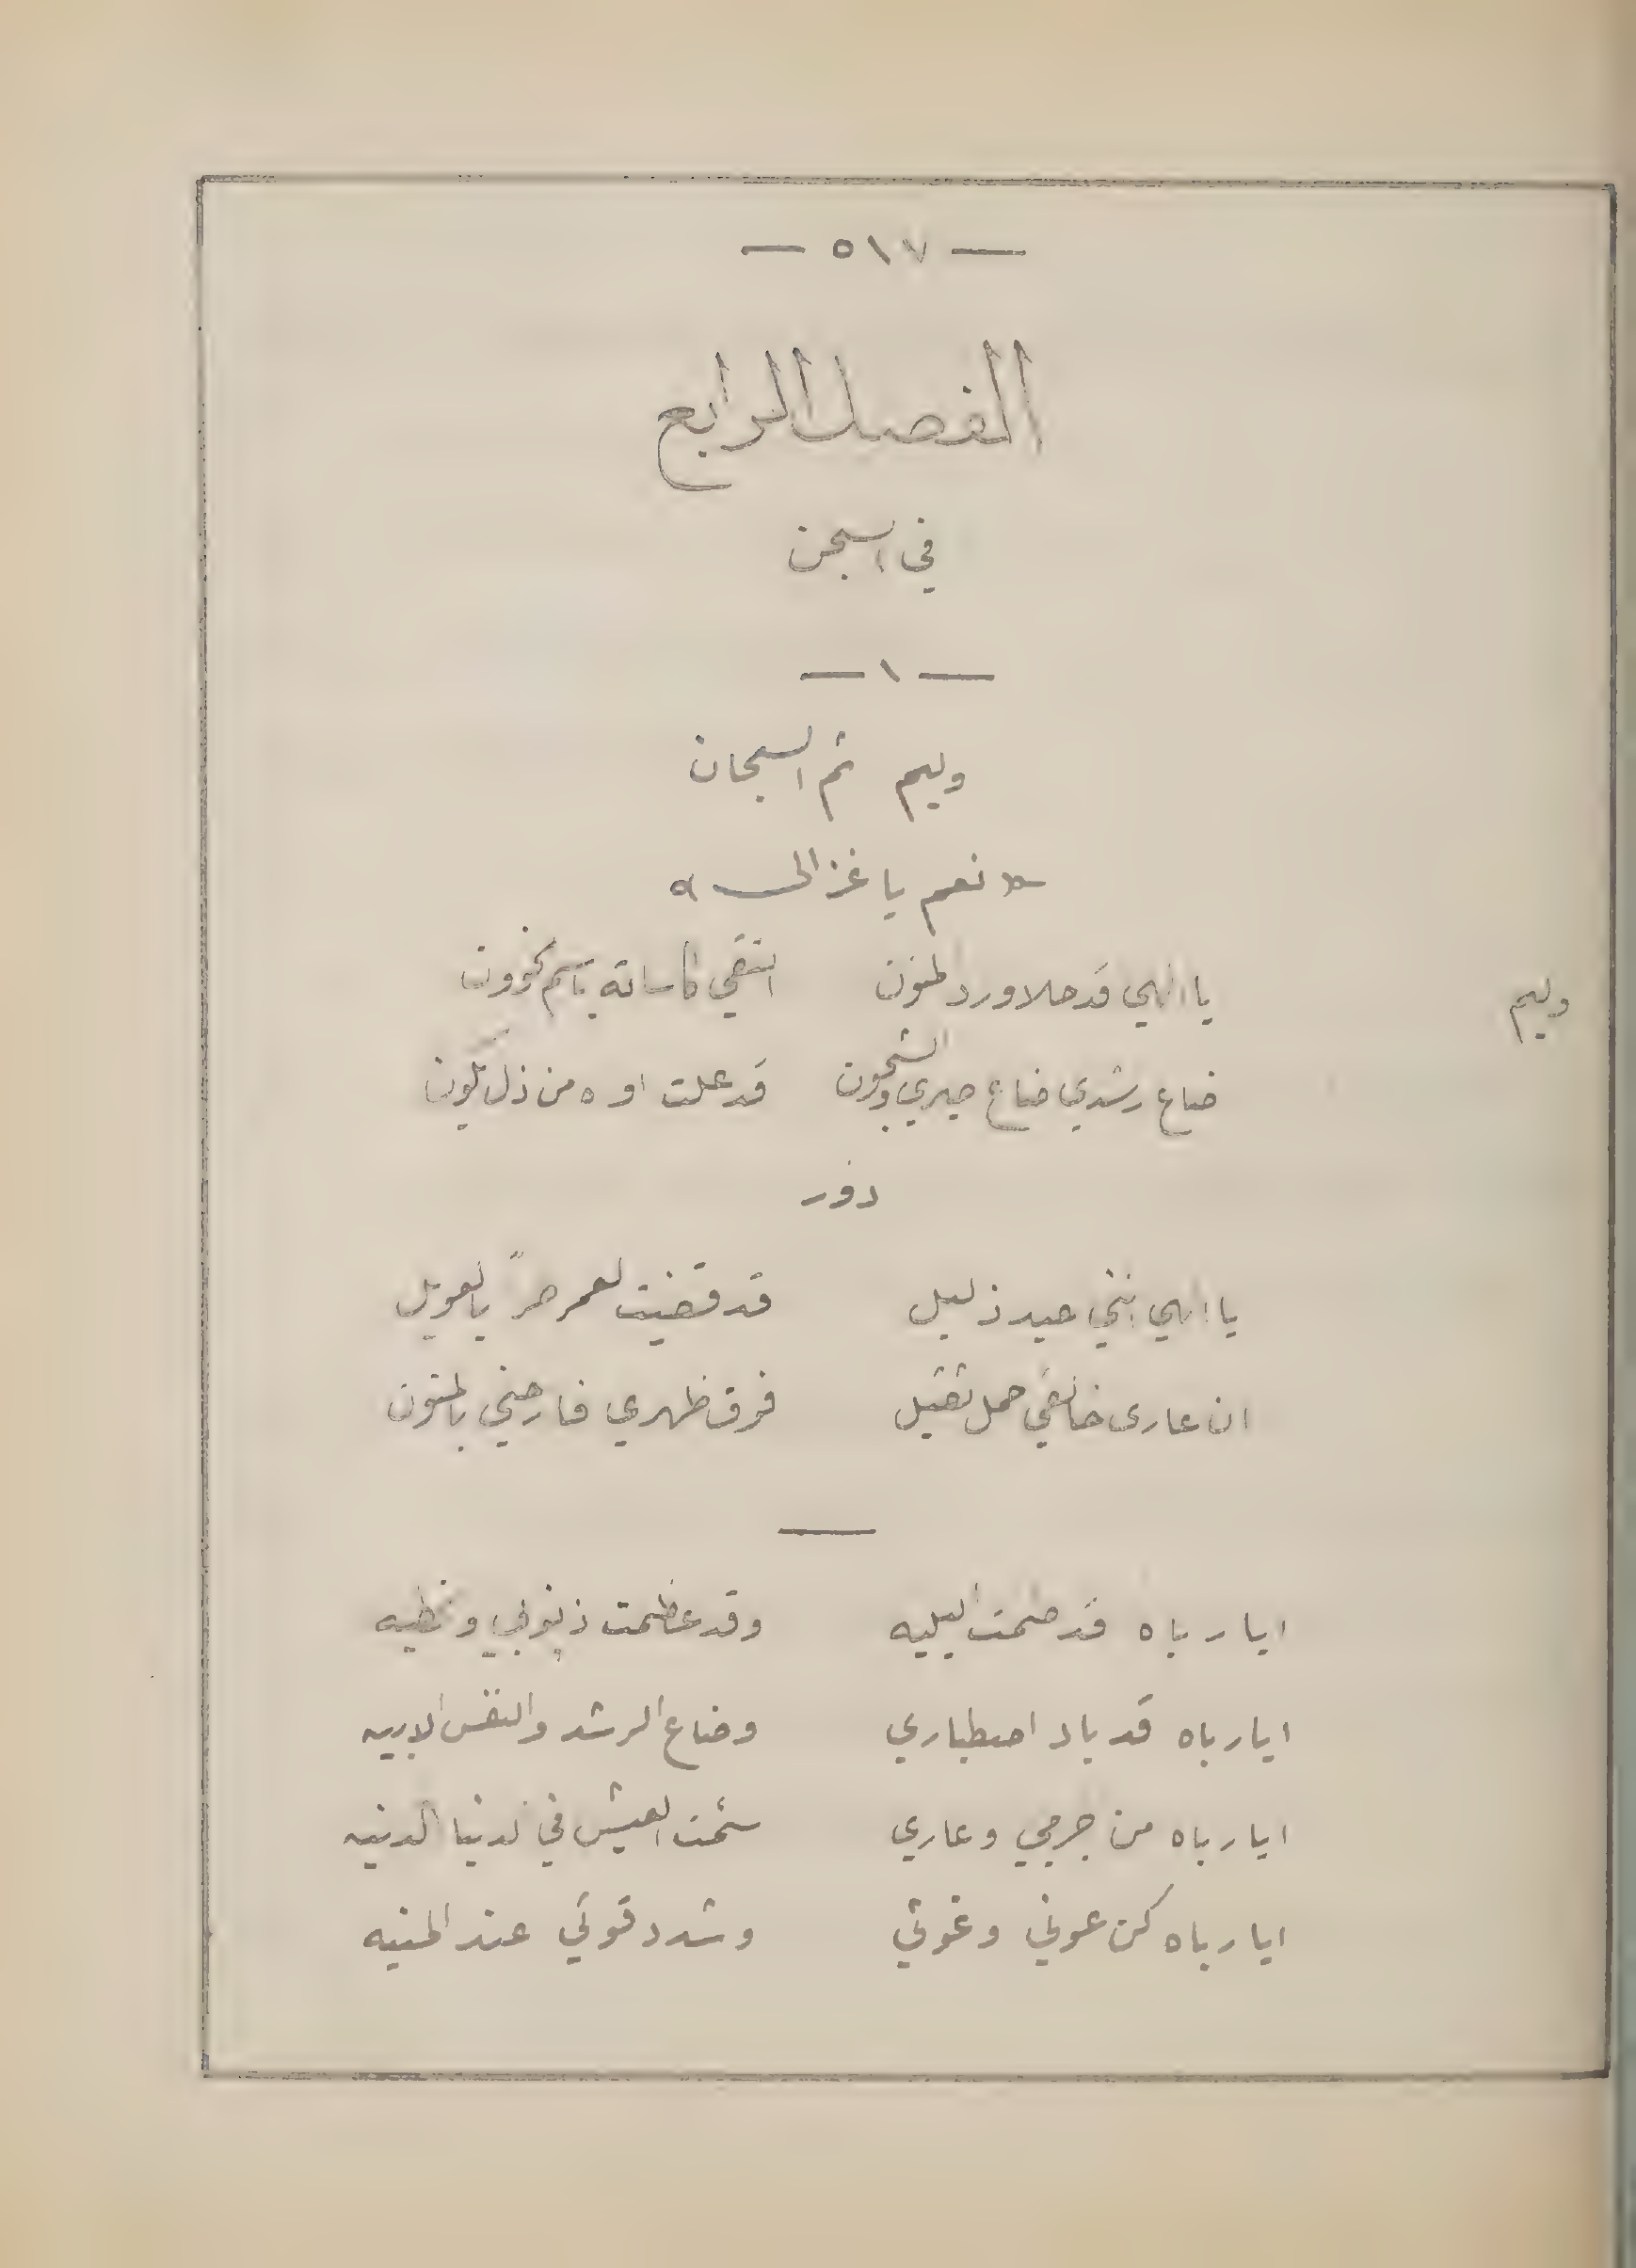 — ٥١٧ —
الفصل الرابع
في السجن
— ١ —
وليم ثم السجان
« نعم يا غزالى »
وليم يا الهي قد حلا ورد المنون اسقني كاساته
ضاع رشدي ضاع صبري والشجون قد علت اوه من ذل
دور
يا الهي انني عبد ذليل قد قضيت العمر مراً بالعويل
ان عارى خالقي حمل ثقيل فوق ظهري فارحني بالمنون
ايا رباه قد طمت البليه وقد عظمت ذنوبي و
ايا رباه قد باد اصطباري وضاع الرشد والنفس الابيه
ايا رباه من جرمي وعاري سئمت العيش في الدنيا الدنيه
ايا رباه كن عوني وغوثي وشدد قوتي عند المنيه